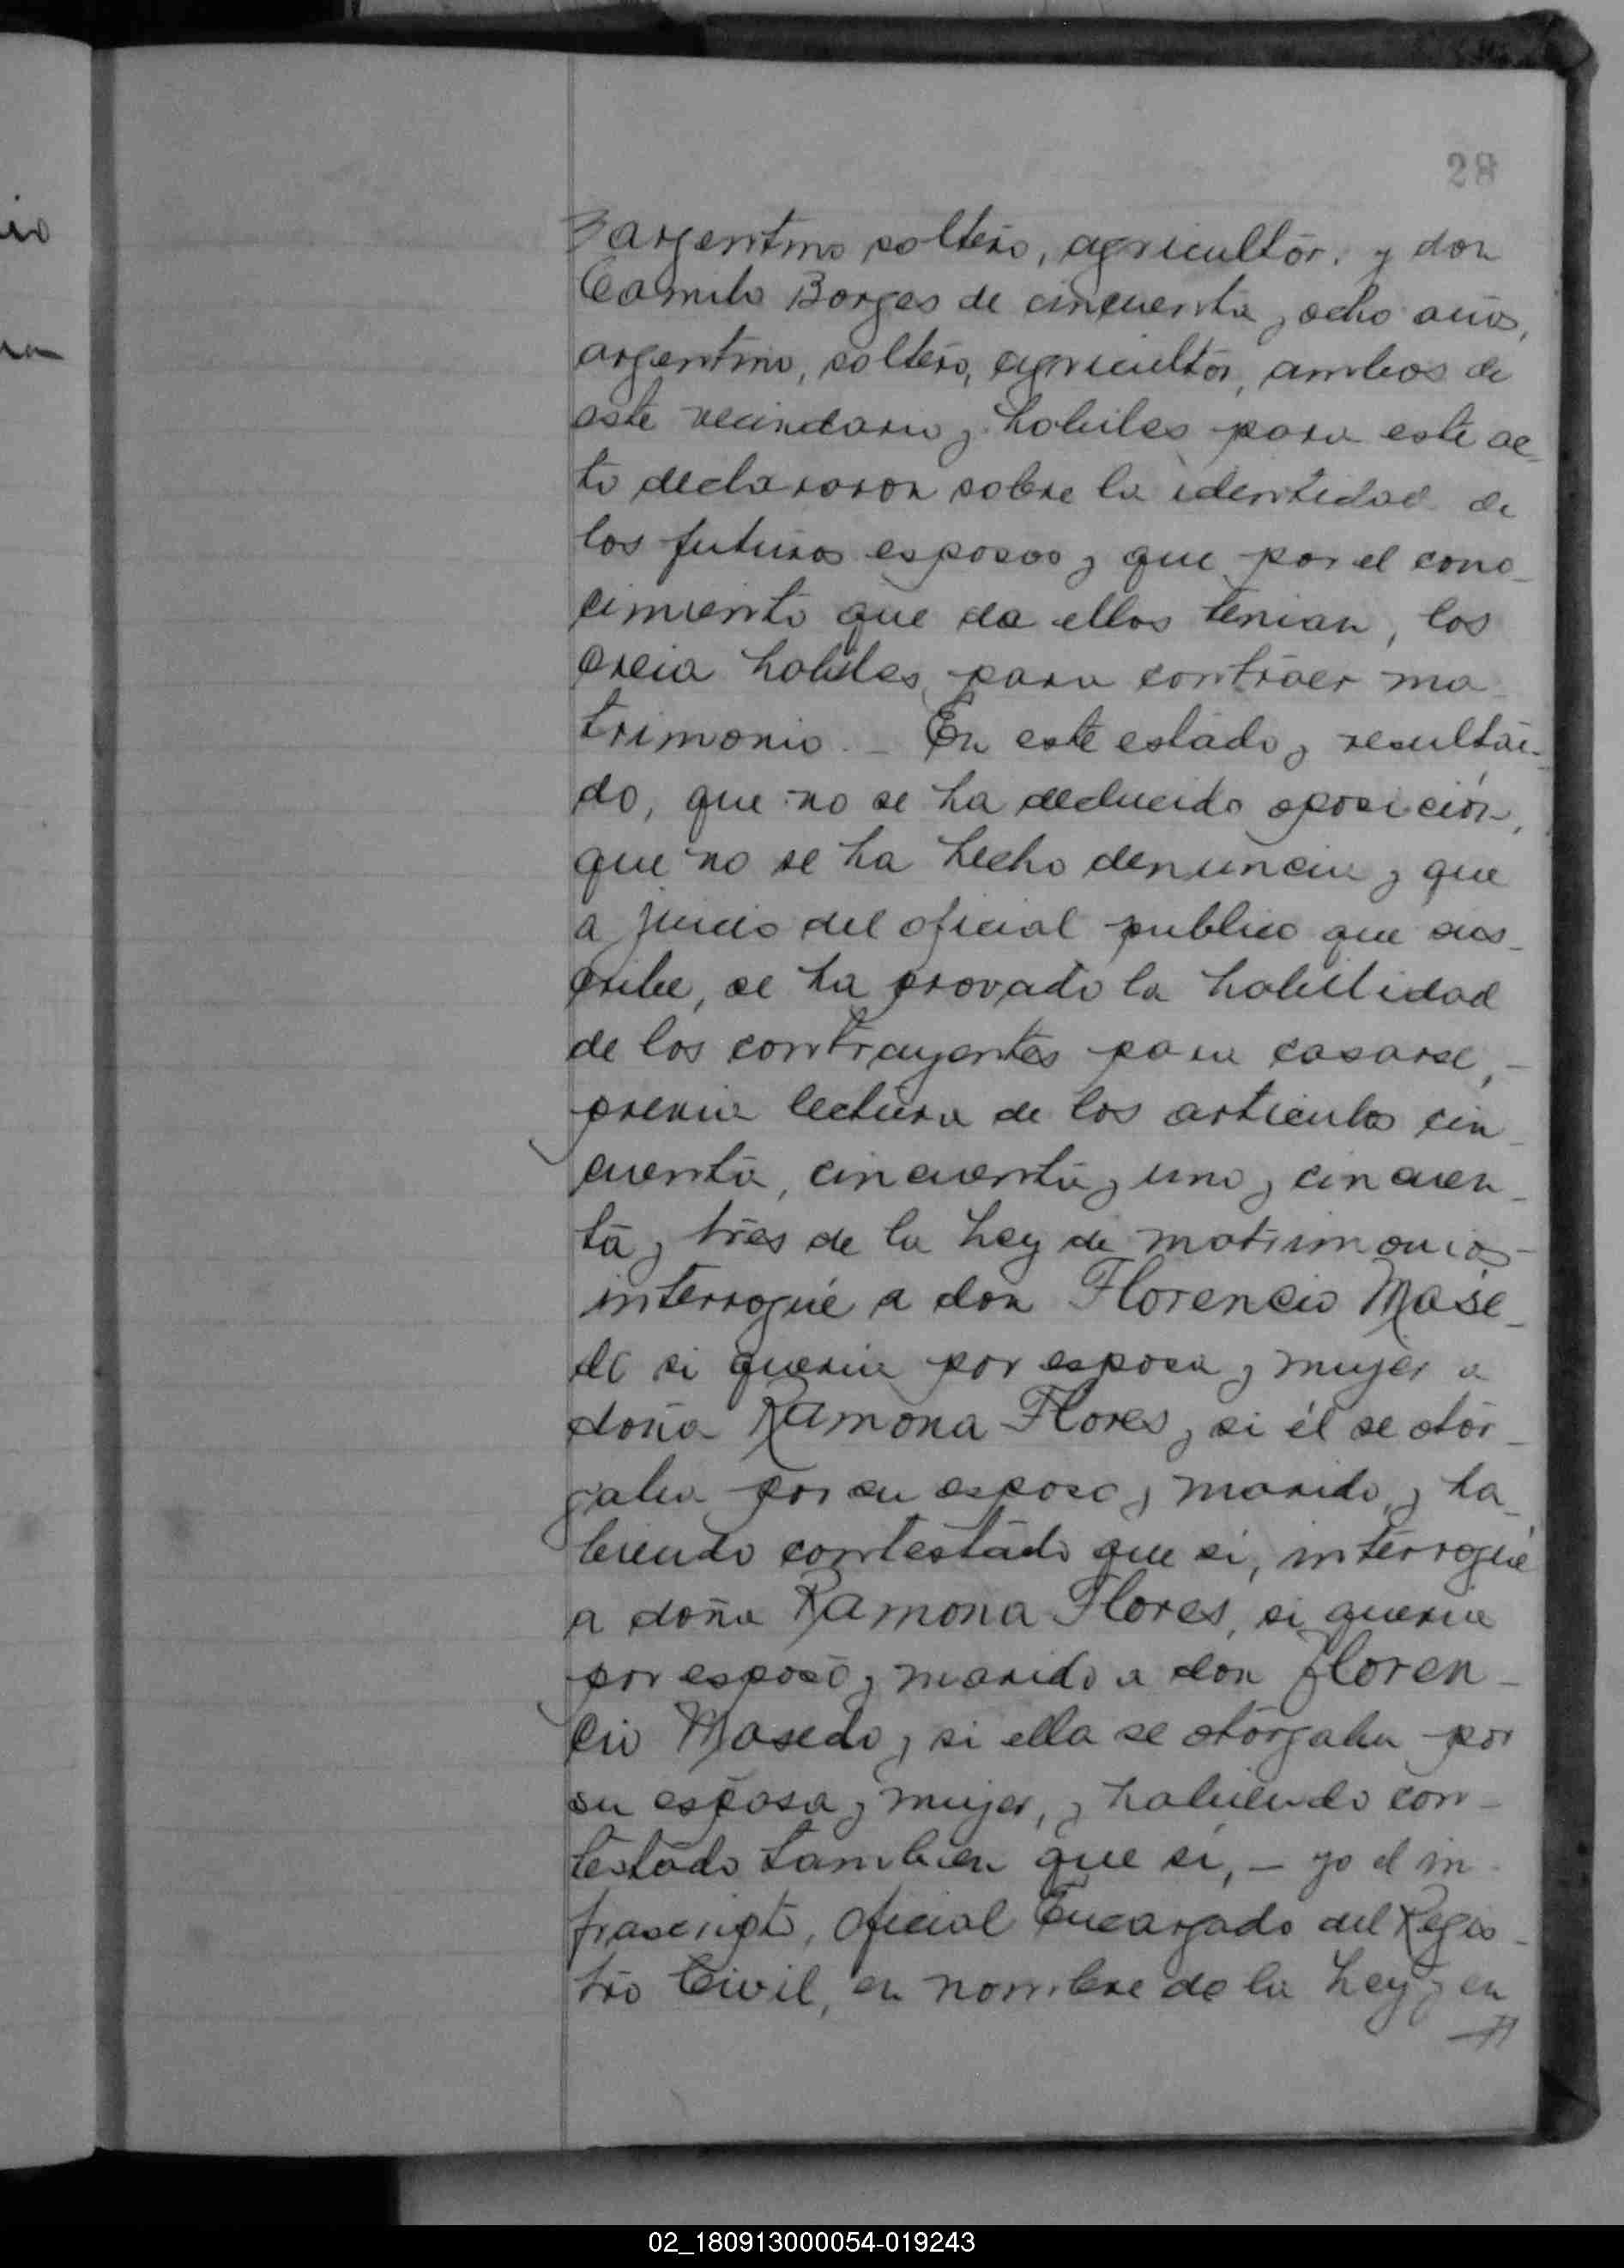 28
argentino soltero, agricultor, y don
Camilo Borges de cincuenta y ocho años,
argentino, soltero, agricultor, ambos de
este vecindario y habiles para este ac-
to declararon sobre la identidad de
los futuros esposos y que por el cono-
cimiento que de ellos tenian, los
creia habiles para contraer ma-
trimonio. - En este estado y resultan-
do, que no se ha deducido oposición,
que no se ha hecho denuncia y que
a juicio del oficial publico que sus-
cribe, se ha provado la habilidad
de los contrayentes para casarse, -
previa lectura de los articulos cin-
cuenta, cincuenta y uno y cincuen-
ta y tres de la Ley de matrimonios -
interrogué a don Florencio Mase-
do si queria por esposa y mujer a
doña Ramona Flores y si él se otor-
gaba por su esposo y marido y ha-
biendo contestado que si, interrogué
a doña Ramona Flores, si queria
por esposo y marido a don Floren-
cio Masedo y si ella se otorgaba por
su esposa y mujer, y habiendo con-
testado tambien que si, - yo el in-
frascripto, Oficial Encargado del Regis-
tro Civil, en nombre de la Ley y en
02_180913000054-019243